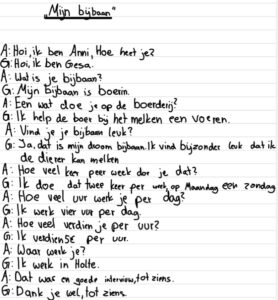 „Mijn bijbaan"
A: Hoi, ik ben Anni, Hoe heet je?
G: Hoi, ik ben Gesa.
A: Wat is je bijbaan?
G: Mijn Bijbaan is boerin.
A: Een wat doe je op de boerderij?
G: Ik help de boer bij het melken een voeren.
A: Vind je je bijbaan leuk?
G: Ja, dat is mijn droom bijbaan. Ik vind bijzonder leuk dat ik
de dieren kan melken
A: Hoe veel keer peer week doe je dat?
G: Ik doe dat twee keer per week, op Maandag een zondag
A: Hoe veel uur werk je per dag?
G: Ik werk vier uur per dag.
A: Hoe veel verdien je per uur?
G: Ik verdien 5€ per uur.
A: Waar werk je?
G: Ik werk in Holte.
A: Dat was en goede interview, tot ziens.
G: Dank je wel, tot ziens